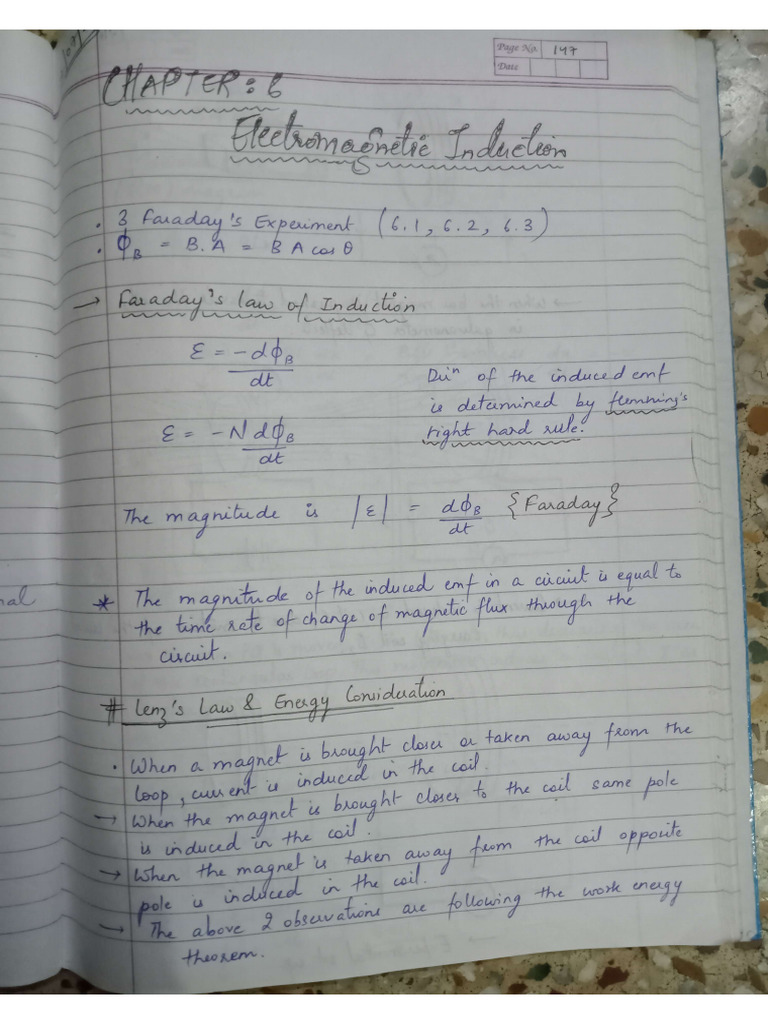 Page No. 147
Date
CHAPTER: 6
Electromagnetic Induction
• 3 Faraday's Experiment (6.1, 6.2, 6.3)
• ϕ_B = B.A = BA cos θ
→ Faraday's law of Induction
ε = -dϕ_B/dt
Dirⁿ of the induced emf
is determined by flemming's
right hard rule.
ε = -N dϕ_B/dt
The magnitude is |ε| = dϕ_B/dt {Faraday}
* The magnitude of the induced emf in a circuit is equal to
the time rate of change of magnetic flux through the
circuit.
# Lenz's Law & Energy Consideration
• When a magnet is brought closer or taken away from the
loop, current is induced in the coil.
→ When the magnet is brought closer to the coil same pole
is induced in the coil.
→ When the magnet is taken away from the coil opposite
pole is induced in the coil.
→ The above 2 observations are following the work energy
theorem.
nal